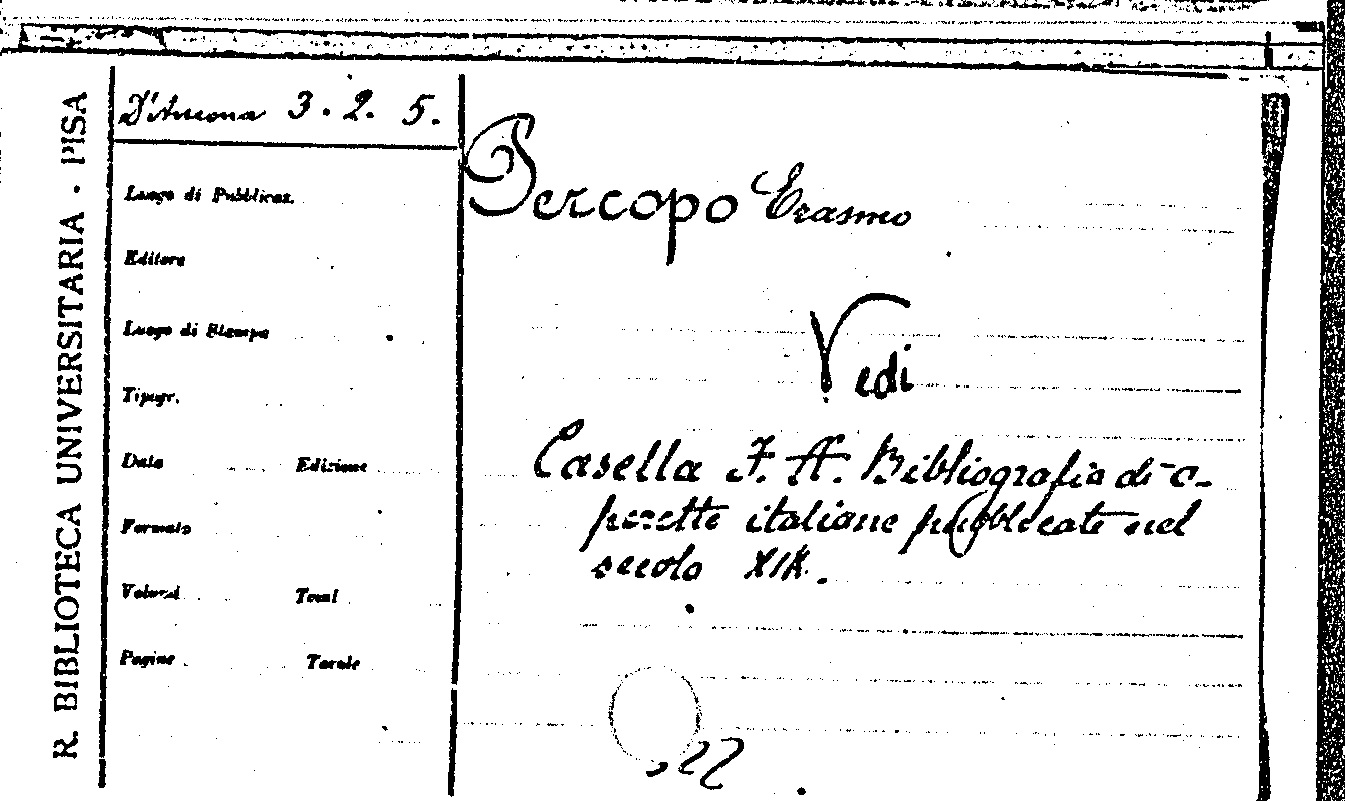 R. BIBLIOTECA UNIVERSITARIA - PISA
D'Ancona 3. 2. 5.
Luogo di Pubblicaz.
Editore
Luogo di Stampa
Tipogr.
Data Edizione
Formato
Volumi Tomi
Pagine Tavole
Percopo Erasmo
Vedi
Casella F. A. Bibliografia di o-
perette italiane pubblicate nel
secolo XIX.